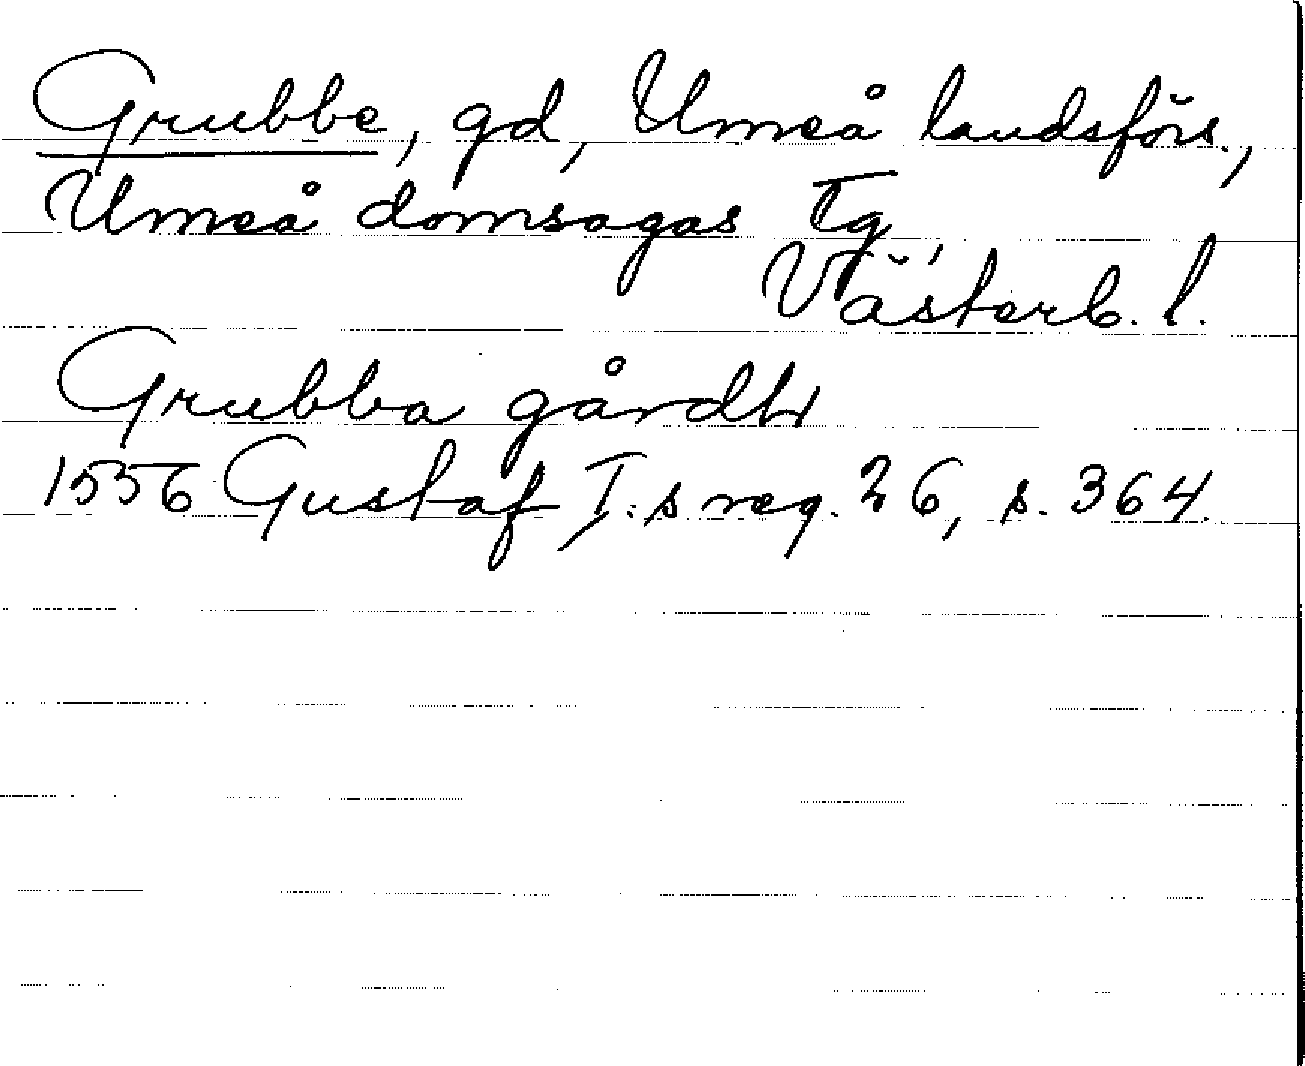 Grubbe, gd, Umeå landsförs.,
Umeå domsagas Tg,
Västerb. l.
Grubba gårdh
1556 Gustaf I:s reg. 26, s. 364.